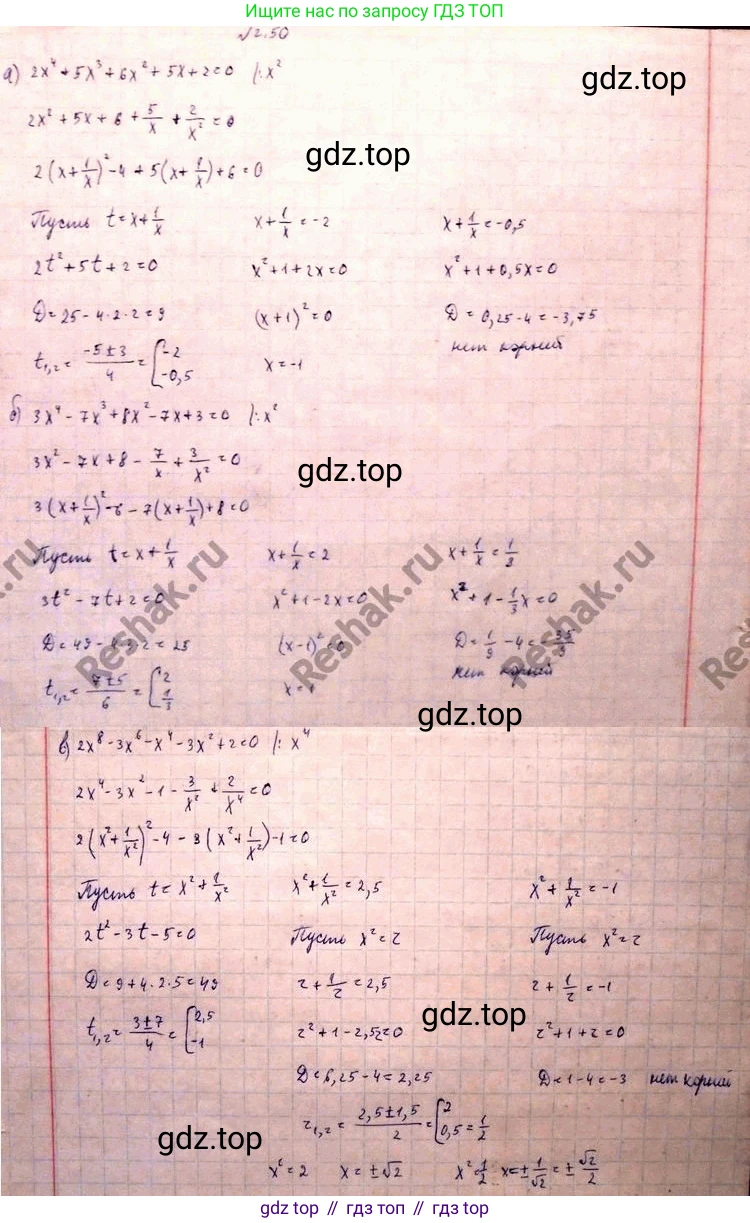 Больше решебников найдете на сайте по запросу ГДЗ ТОП
№2.50
а) 2x⁴+5x³+6x²+5x+2=0 |:x²
gdz.top
2x²+5x+6+5/x+2/x²=0
gdz.top
2(x+1/x)²-4+5(x+1/x)+6=0
Пусть t=x+1/x x+1/x=-2 x+1/x=-0,5
2t²+5t+2=0 x²+1+2x=0 x²+1+0,5x=0
D=25-4·2·2=9 (x+1)²=0 D=0,25-4=-3,75
нет корней
t₁,₂=(-5±3)/4=[-2 -0,5 x=-1
б) 3x⁴-7x³+8x²-7x+3=0 |:x²
3x²-7x+8-7/x+3/x²=0
gdz.top
3(x+1/x)²-6-7(x+1/x)+8=0
Пусть t=x+1/x x+1/x=2 x+1/x=1/3
3t²-7t+2=0 x²+1-2x=0 x²+1-1/3x=0
D=49-4·3·2=25 (x-1)²=0 D=1/9-4=-35/9
нет корней
t₁,₂=(7±5)/6=[2 1/3 x=1
Reshak.ru
Reshak.ru
Reshak.ru
gdz.top
в) 2x⁸-3x⁶-x⁴-3x²+2=0 |:x⁴
2x⁴-3x²-1-3/x²+2/x⁴=0
2(x²+1/x²)²-4-3(x²+1/x²)-1=0
Пусть t=x²+1/x² x²+1/x²=2,5 x²+1/x²=-1
2t²-3t-5=0 Пусть x²=z Пусть x²=z
D=9+4·2·5=49 z+1/z=2,5 z+1/z=-1
gdz.top
t₁,₂=(3±7)/4=[2,5 -1 z²+1-2,5z=0 z²+1+z=0
D=6,25-4=2,25 D=1-4=-3 нет корней
z₁,₂=(2,5±1,5)/2=[2 0,5=1/2
gdz.top
x²=2 x=±√2 x²=1/2 x=±1/√2=±√2/2
gdz.top // гдз топ // gdz top